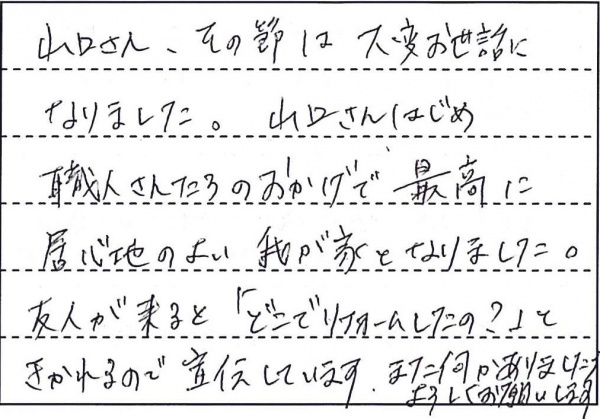 山口さん、その節は 大変お世話に
なりました。 山口さんはじめ
職人さんたちのおかげで 最高に
居心地のよい 我が家となりました。
友人が来ると「どこでリフォームしたの？」と
きかれるので 宣伝しています。また何かありましたら
よろしくお願いします